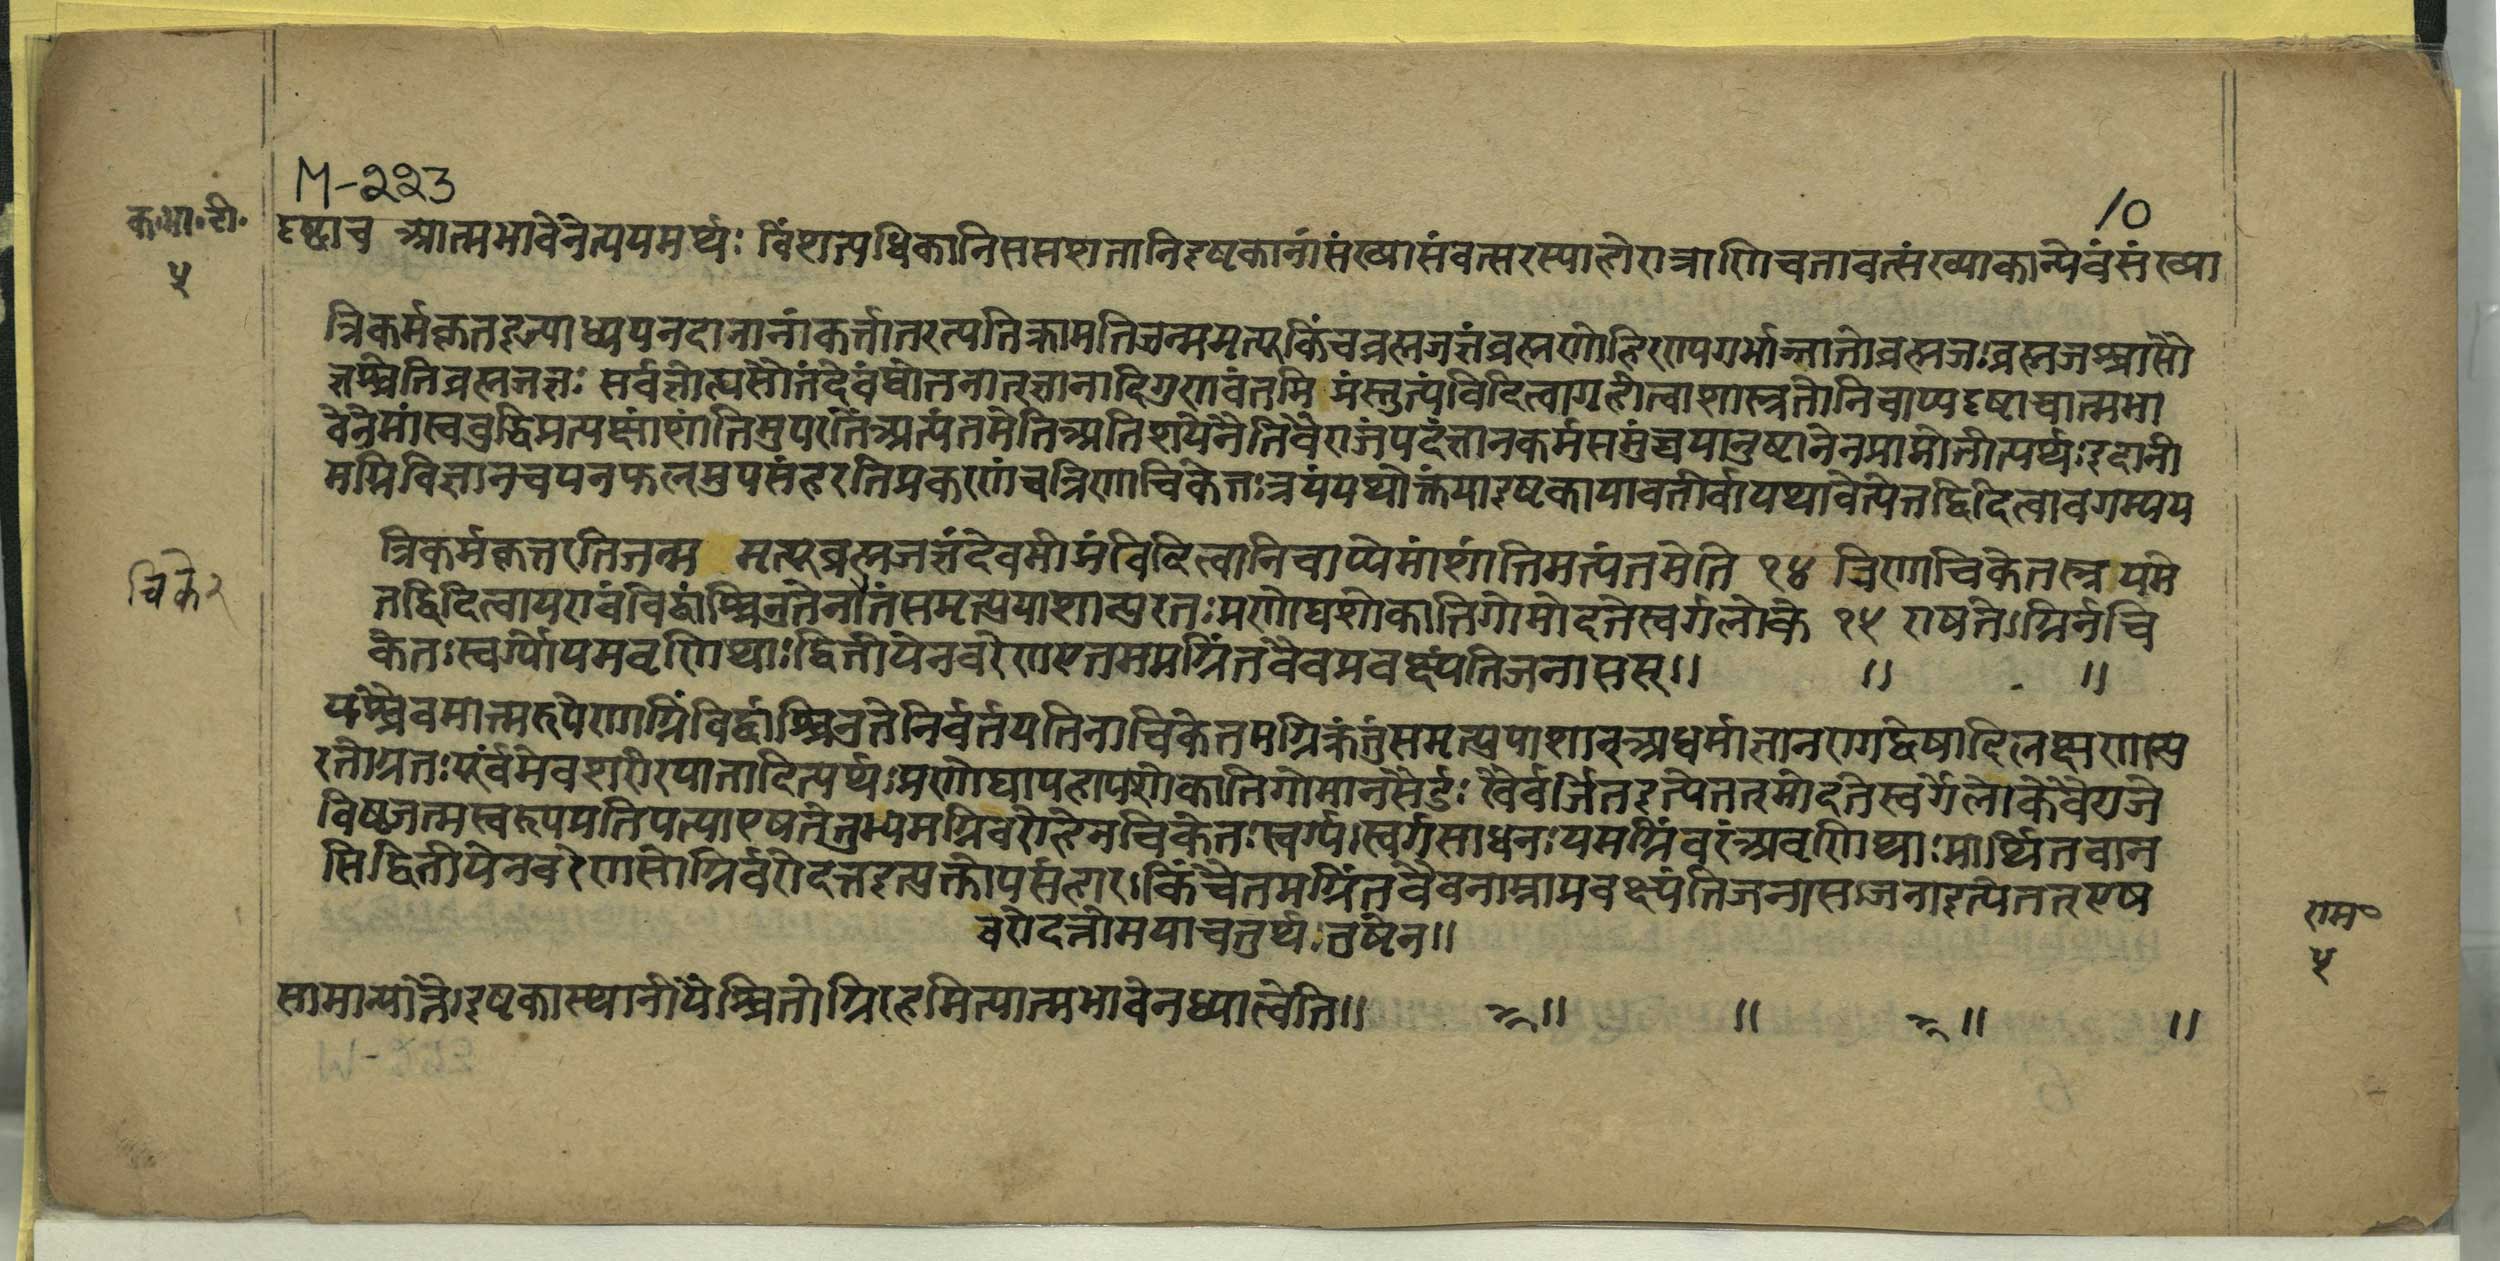 M-223
10
क.भा.टी.
५
दृष्ट्वाच आत्मभावेनेत्ययमर्थः विंशत्यधिकानिसप्तशतानीष्टकानांसंख्यासंवत्सरस्याहोरात्राणिचतावत्संख्याकान्येवंसंख्या
त्रिकर्मकृतइज्याध्ययनदानानांकर्त्तातरत्यतिक्रामतिजन्ममृत्यूकिंचब्रह्मजज्ञंब्रह्मणोहिरण्यगर्भाज्जातोब्रह्मजःब्रह्मजश्चासौ
ज्ञश्चेतिब्रह्मजज्ञः सर्वज्ञोत्द्यसौतंदेवंद्योतनात्ज्ञानादिगुणवंतमि मंस्तुत्यंविदित्वागृहीत्वाशास्त्रतोनिचाय्यदृष्टाचात्मभा
वेनेमांस्वबुद्धिप्रत्यक्षांशांतिमुपरतिंअत्यंतमेतिअतिशयेनैतिवैराजंपदंज्ञानकर्मसमुंच्चयानुष्टानेनप्राप्नोतीत्यर्थःइदानी
मग्निविज्ञानचयनफलमुपसंहरतिप्रकरणंचत्रिणाचिकेतःत्रयंयथोक्तंयाइष्टकायावतीर्वायथावेत्येतद्विदित्वावगम्यय
त्रिकर्मकृत्तरतिजन्म मृत्यूब्रह्मजज्ञंदेवमीमंविदित्वानिचाय्येमांशांतिमत्यंतमेति १४ त्रिणाचिकेतस्त्रयमे
चिके २
तद्विदित्वायएवंविद्वांश्चिनुतेनांतंसमृत्युपाशात्पुरतःप्रणोद्यशोकातिगोमोदतेस्वर्गलोके १५ एषतेग्निर्नचि
केतःस्वर्ग्योयमवृणिथाःद्वितीयेनवरेणएतममग्निंतवैवप्रवक्ष्यंतिजनासस्॥ ॥ ॥
यश्चैवमात्मरूपेणाग्निंविद्वांश्चिनुतेनिर्वर्तयतिनाचिकेतमग्निक्रंतुंसमृत्युपाशान्अधर्माज्ञानरागद्वेषादिलक्षणात्पु
रतोग्रतःपूर्वमेवशरीरपातादित्यर्थःप्रणोद्यापहायशोकातिगोमानसैर्दुःखैर्वर्जितइत्येतत्मोदतेस्वर्गेलोकेवैराजे
विष्वजत्मस्वरूपप्रतिपत्याएषतेतुभ्यमग्निवरोहेनचिकेतःस्वर्ग्यःस्वर्गसाधनःयमग्निंवरंअवृणिथाःप्रार्थितवान
सिद्वितीयेनवरेणसोग्निर्वरोदत्तइत्युक्तोपसंहारः।किंचैतमग्निंतवैवनाम्नाप्रवक्ष्यंतिजनासःजनाइत्येतत्एष
वरोदत्तोमयाचतुर्थःतुष्टेन॥
राम॰
५
सामान्यात्तैःइष्टकास्थानीयैश्चितोग्निरहमित्यात्मभावेनध्यात्वेति॥ ॥ ॥ ॥ ॥